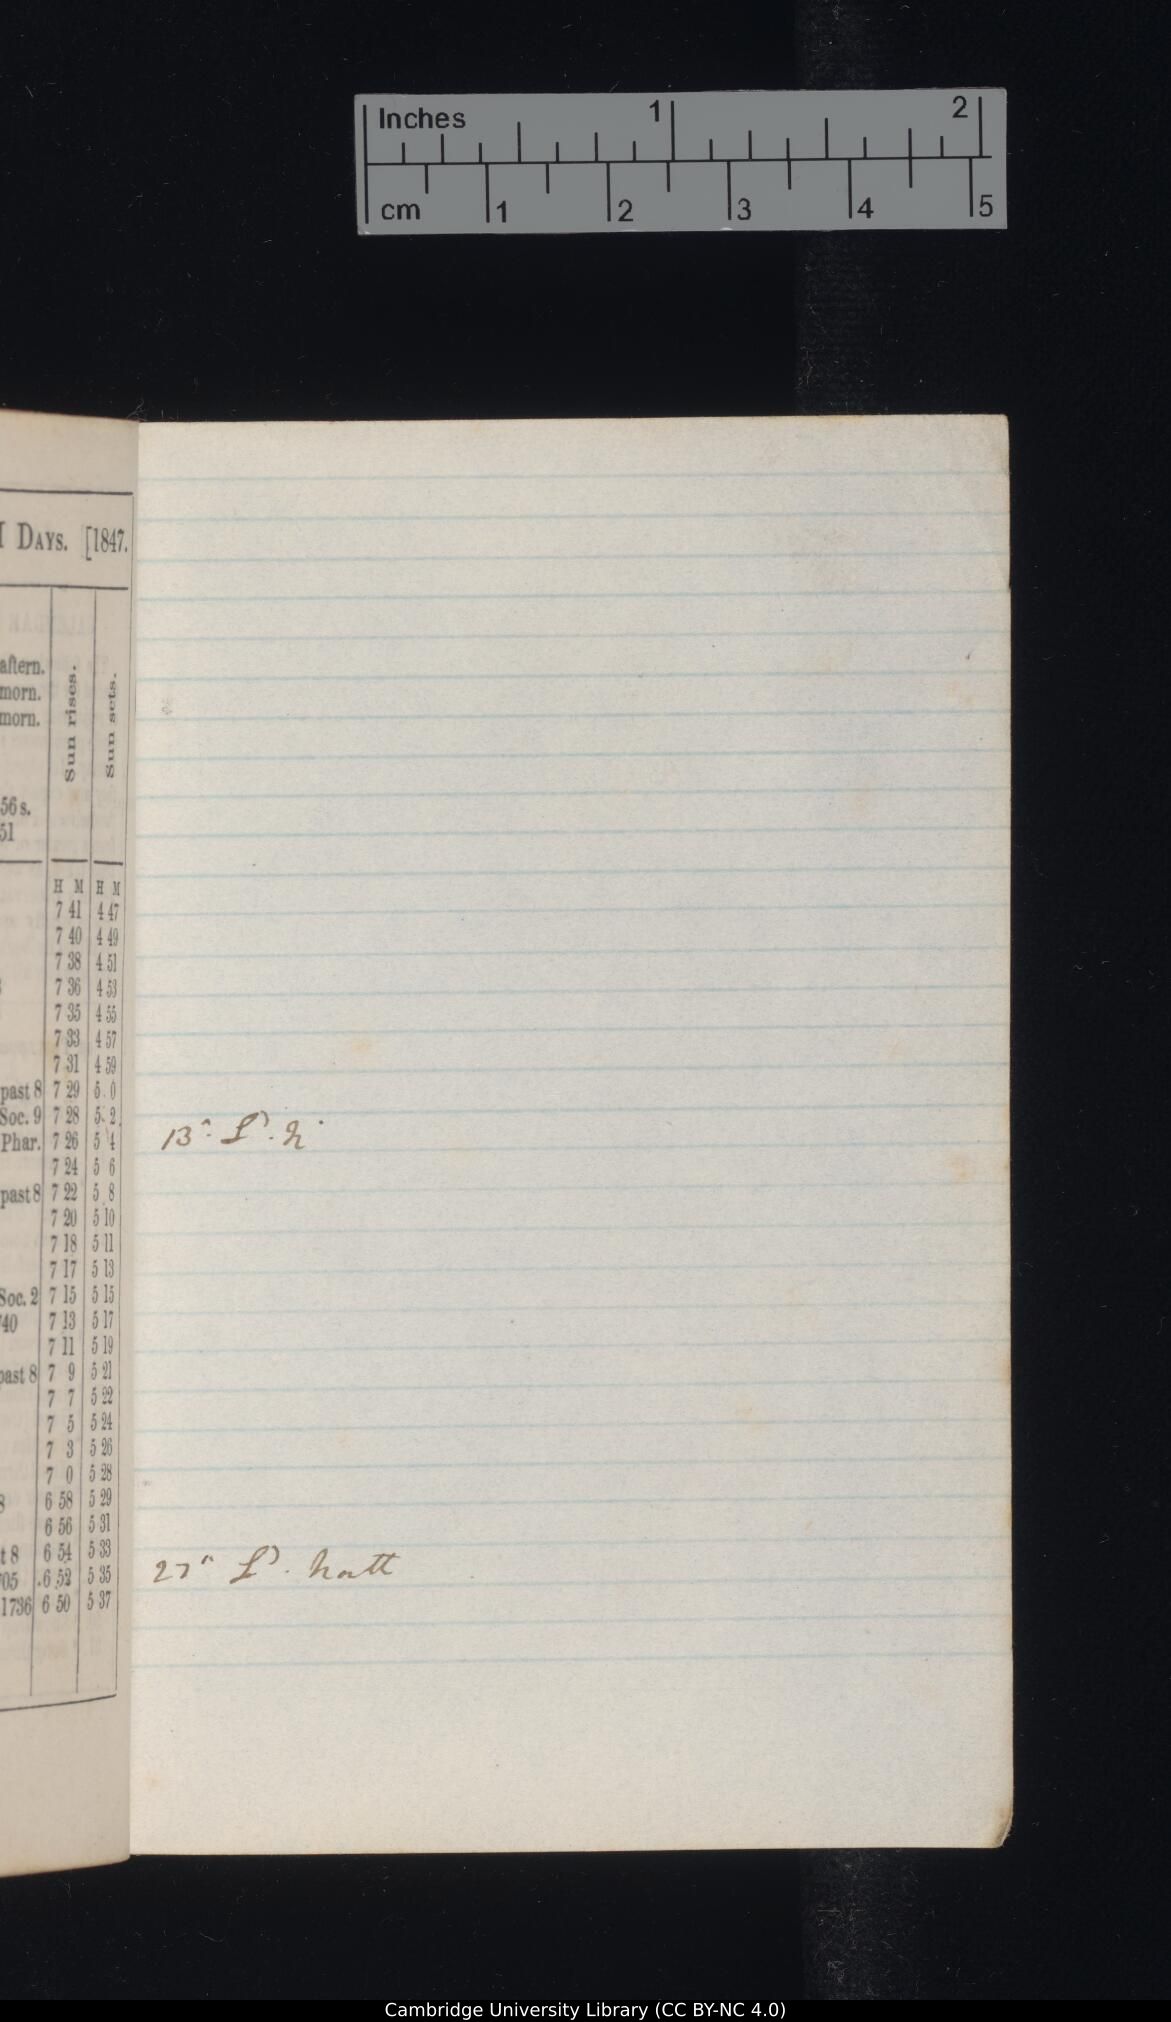 Inches 1 2
cm 1 2 3 4 5
DAYS. [1847.
aftern.
morn.
morn.
56 s.
51
Sun rises.
Sun sets.
H M H M
7 41 4 47
7 40 4 49
7 38 4 51
7 36 4 53
7 35 4 55
7 33 4 57
7 31 4 59
past 8 7 29 5 0
Soc. 9 7 28 5 2
Phar. 7 26 5 4
7 24 5 6
past 8 7 22 5 8
7 20 5 10
7 18 5 11
7 17 5 13
Soc. 2 7 15 5 15
40 7 13 5 17
7 11 5 19
past 8 7 9 5 21
7 7 5 22
7 5 5 24
7 3 5 26
7 0 5 28
8 6 58 5 29
6 56 5 31
t 8 6 54 5 33
05 6 52 5 35
1736 6 50 5 37
13
27
Cambridge University Library (CC BY-NC 4.0)